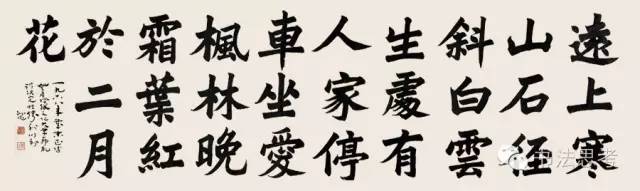 遠上寒
山石徑
斜白雲
生處有
人家停
車坐愛
楓林晚
霜葉紅
於二月
花
书法思考